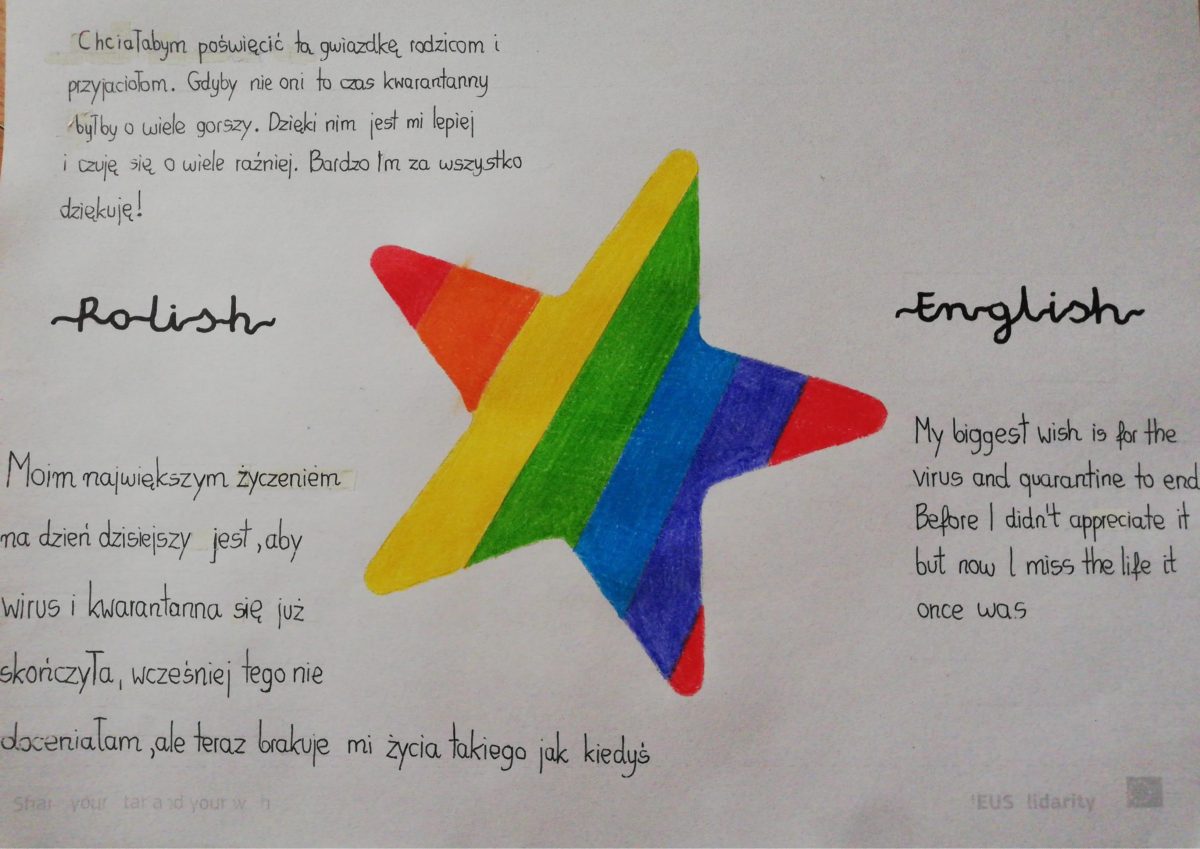 Chciałabym poświęcić tą gwiazdkę rodzicom i
przyjaciołom. Gdyby nie oni to czas kwarantanny
byłby o wiele gorszy. Dzięki nim jest mi lepiej
i czuję się o wiele raźniej. Bardzo Im za wszystko
dziękuję!
Polish
Moim największym życzeniem
na dzień dzisiejszy jest, aby
wirus i kwarantanna się już
skończyła, wcześniej tego nie
doceniałam, ale teraz brakuje mi życia takiego jak kiedyś
English
My biggest wish is for the
virus and quarantine to end
Before I didn't appreciate it
but now I miss the life it
once was
your and your